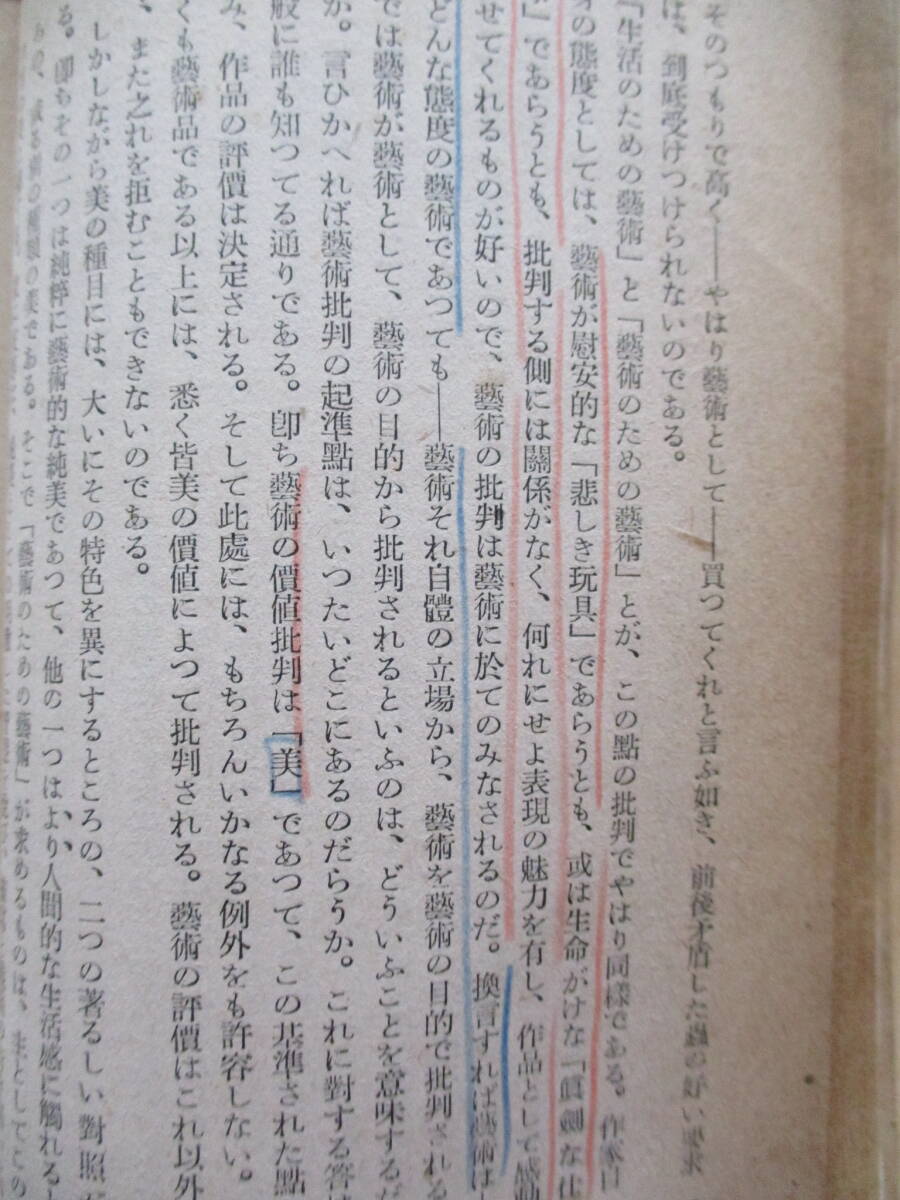 そのつもりで高く――やはり藝術として――買つてくれと言ふ如き、前後矛盾した蟲の好い要求
は、到底受けつけられないのである。
「生活のための藝術」と「藝術のための藝術」とが、この點の批判でやはり同樣である。作家自
の態度としては、藝術が慰安的な「悲しき玩具」であらうとも、或は生命がけな「眞劍な仕
」であらうとも、批判する側には關係がなく、何れにせよ表現の魅力を有し、作品として感動
せてくれるものが好いので、藝術の批判は藝術に於てのみなされるのだ。換言すれば藝術は
どんな態度の藝術であつても――藝術それ自體の立場から、藝術を藝術の目的で批判される
では藝術が藝術として、藝術の目的から批判されるといふのは、どういふことを意味するだ
か。言ひかへれば藝術批判の起準點は、いつたいどこにあるのだらうか。これに對する答は
般に誰も知つてる通りである。卽ち藝術の價値批判は「美」であつて、この基準された點
み、作品の評價は決定される。そして此處には、もちろんいかなる例外をも許容しない。
くも藝術品である以上には、悉く皆美の價値によつて批判される。藝術の評價はこれ以外
、また之れを拒むこともできないのである。
しかしながら美の種目には、大いにその特色を異にするところの、二つの著るしい對照が
る。卽ちその一つは純粹に藝術的な純美であつて、他の一つはより人間的な生活感に觸れる
の美である。そこで「藝術のための藝術」が求めるものは、主としてこの